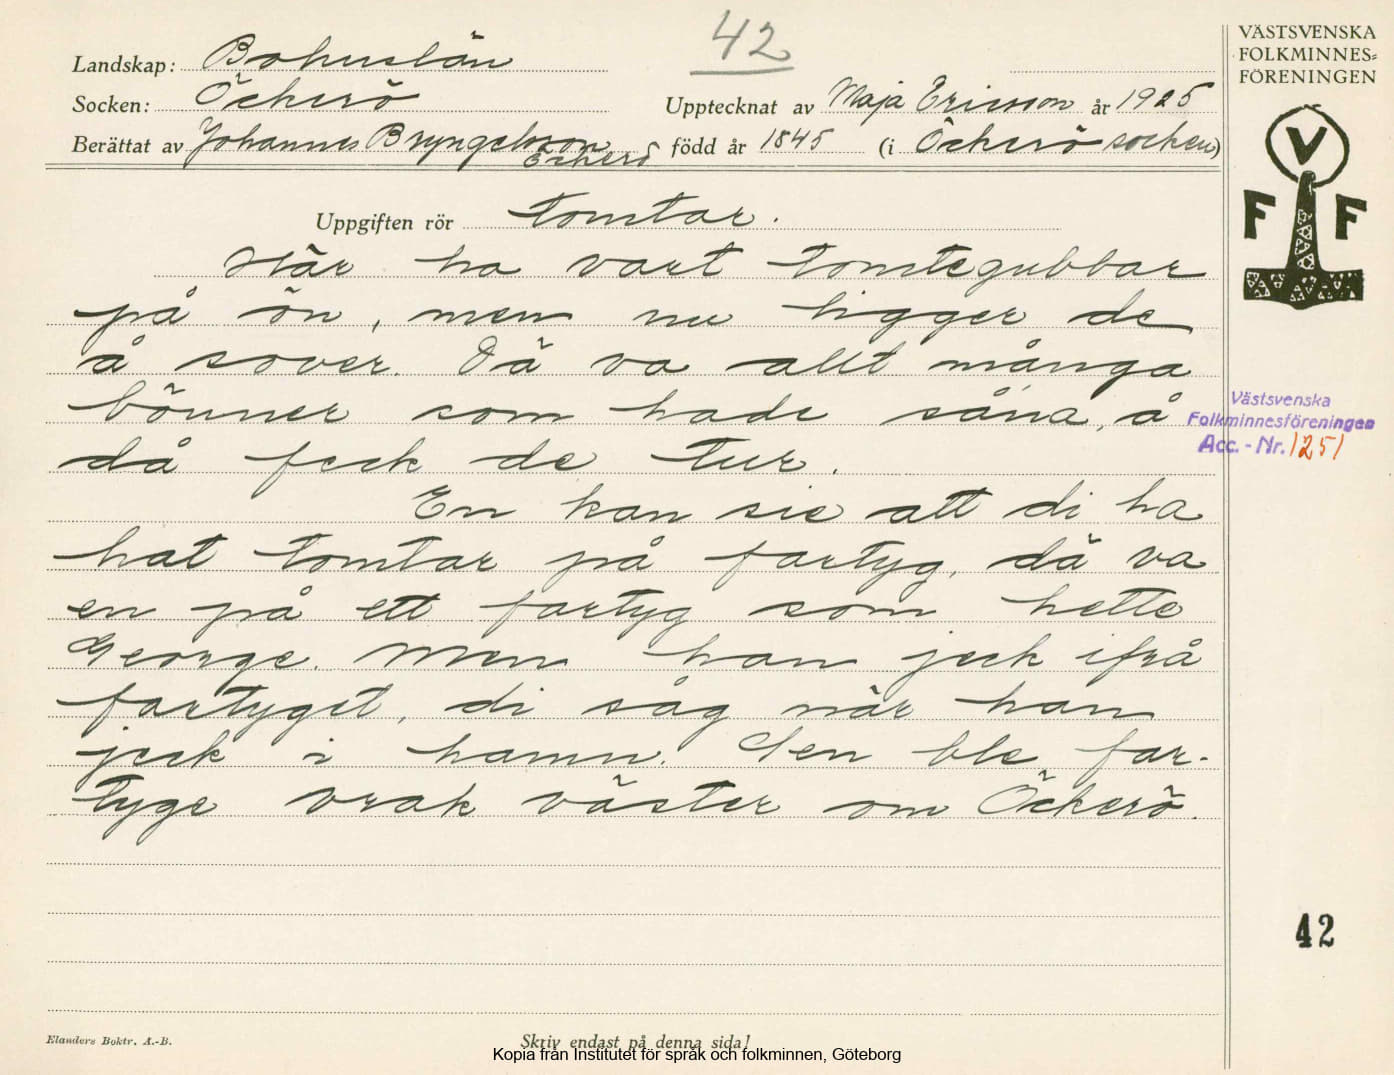 42
VÄSTSVENSKA
FOLKMINNES=
FÖRENINGEN
Landskap: Bohuslän
Socken: Öckerö
Upptecknat av Maja Ericsson år 1925
Berättat av Johannes Bryngelsson Öckerö född år 1845 (i Öckerö socken)
V
F F
Uppgiften rör tomtar.
Här ha vart tomtegubbar
på ön, men nu ligger de
å sover. Dä va allt många
bönner som hade såna, å
då feck de tur.
En kan sie att di ha
hat tomtar på fartyg, dä va
en på ett fartyg som hette
George. Men han jeck ifrå
fartyget, di såg när han
jeck i hamn. Sen ble far-
tyge vrak väster om Öckerö.
Västsvenska
Folkminnesföreningen
Acc.-Nr. 1251
42
Elanders Boktr. A.-B.
Skriv endast på denna sida!
Kopia från Institutet för språk och folkminnen, Göteborg